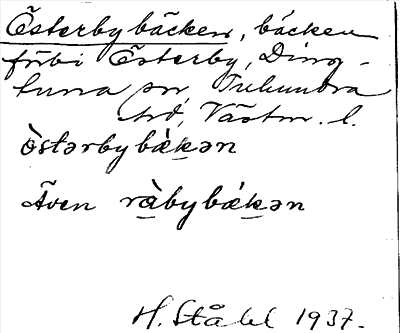 Österbybäcken, bäcken
förbi Österby, Ding-
tuna sn, Tuhundra
hd, Västm. l.
òstərbybæ̀kən
Även ràbybækən
H. Ståhl 1937.